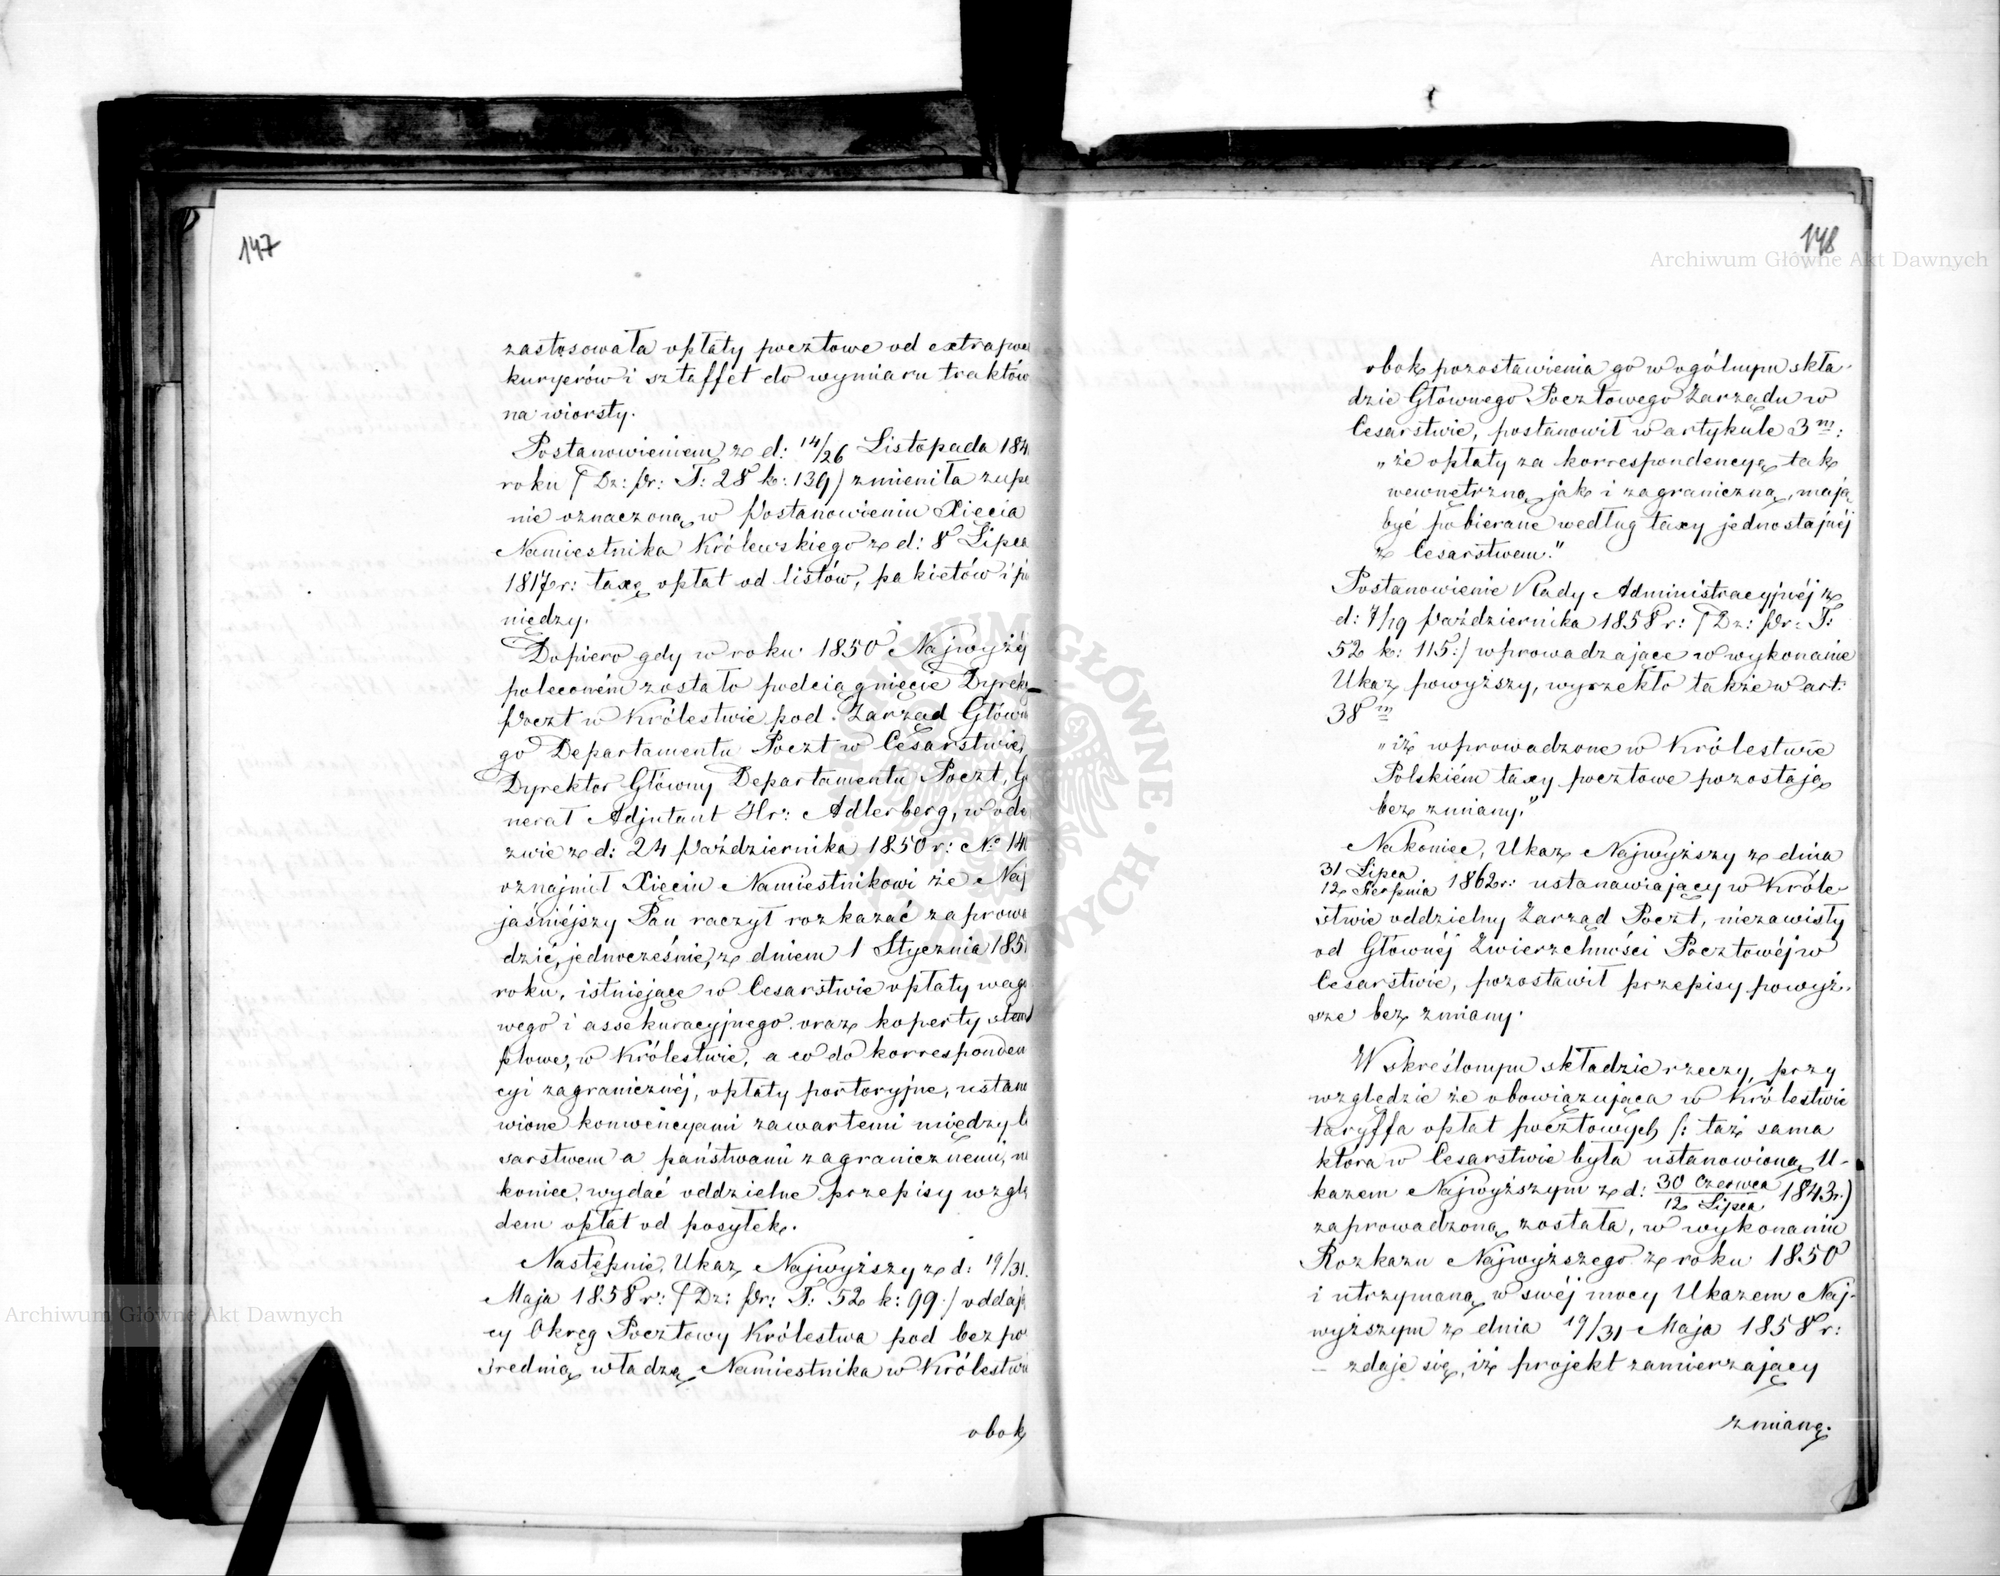 147
zastosowała opłaty pocztowe od extrapocz
kuryerów i sztaffet do wymiaru traktów
na wiorsty.
Postanowieniem z d: 14/26 Listopada 184
roku /: Dz: Pr: T: 28 k: 139/ zmieniła zupe
nie oznaczoną w Postanowieniu Xięcia
Namiestnika Królewskiego z d: 8 Lipca
1817 r: taxę opłat od listów, pakietów i pi
niędzy.
Dopiero gdy w roku 1850 Najwyżéj
poleconém zostało podciągnięcie Dyrek
Poczt w Królestwie pod Zarząd Główn
go Departamentu Poczt w Cesarstwie,
Dyrektor Główny Departamentu Poczt, Ge
nerał Adjutant Hr: Adlerberg, w ode
zwie z d: 24 Października 1850 r: No 14
oznajmił Xięciu Namiestnikowi że Naj
jaśniéjszy Pan raczył rozkazać zaprowa
dzić, jednocześnie, z dniem 1 Stycznia 185
roku, istniejące w Cesarstwie opłaty wago
wego i assekuracyjnego oraz koperty stem
plowe, w Królestwie, a co do korresponden
cyi zagranicznéj, opłaty portoryjne, ustano
wione konwencyami zawartemi między Ce
sarstwem a państwami zagranicznemi, na
koniec, wydać oddzielne przepisy wzglę
dem opłat od posyłek.
Następnie, Ukaz Najwyższy z d: 19/31
Maja 1858 r: /: Dz: Pr: T: 52 k: 99:/ oddają
cy Okręg Pocztowy Królestwa pod bezpo
średnią władzę Namiestnika w Królestwie
obok
148
Archiwum Główne Akt Dawnych
obok pozostawienia go w ogólnym skła-
dzie Głównego Pocztowego Zarządu w
Cesarstwie, postanowił w artykule 3m:
„że opłaty za korrespondencyą tak
wewnętrzną jak i zagraniczną, mają
być pobierane według taxy jednostajnéj
z Cesarstwem."
Postanowienie Rady Administracyjnéj z
d: 7/19 Października 1858 r: /: Dz: Pr: T:
52 k: 115:/ wprowadzające w wykonanie
Ukaz powyższy, wyrzekło także w art:
38m
„iż wprowadzone w Królestwie
Polskiém taxy pocztowe pozostają
bez zmiany."
Nakoniec, Ukaz Najwyższy z dnia
31 Lipca
12 Sierpnia 1862 r: ustanawiający w Króle-
stwie oddzielny Zarząd Poczt, niezawisły
od Głównéj Zwierzchności Pocztowéj w
Cesarstwie, pozostawił przepisy powyż-
sze bez zmiany.
W skreślonym składzie rzeczy, przy
względzie że obowiązująca w Królestwie
taryffa opłat pocztowych /: taż sama
która w Cesarstwie była ustanowioną U-
kazem Najwyższym z d: 30 Czerwca/12 Lipca 1843 r:)
zaprowadzoną została, w wykonaniu
Rozkazu Najwyższego z roku 1850
i utrzymaną w swéj mocy Ukazem Naj-
wyższym z dnia 19/31 Maja 1858 r:
– zdaje się, iż projekt zamierzający
zmianę.
ARCHIWUM GŁÓWNE AKT DAWNYCH
Archiwum Główne Akt Dawnych